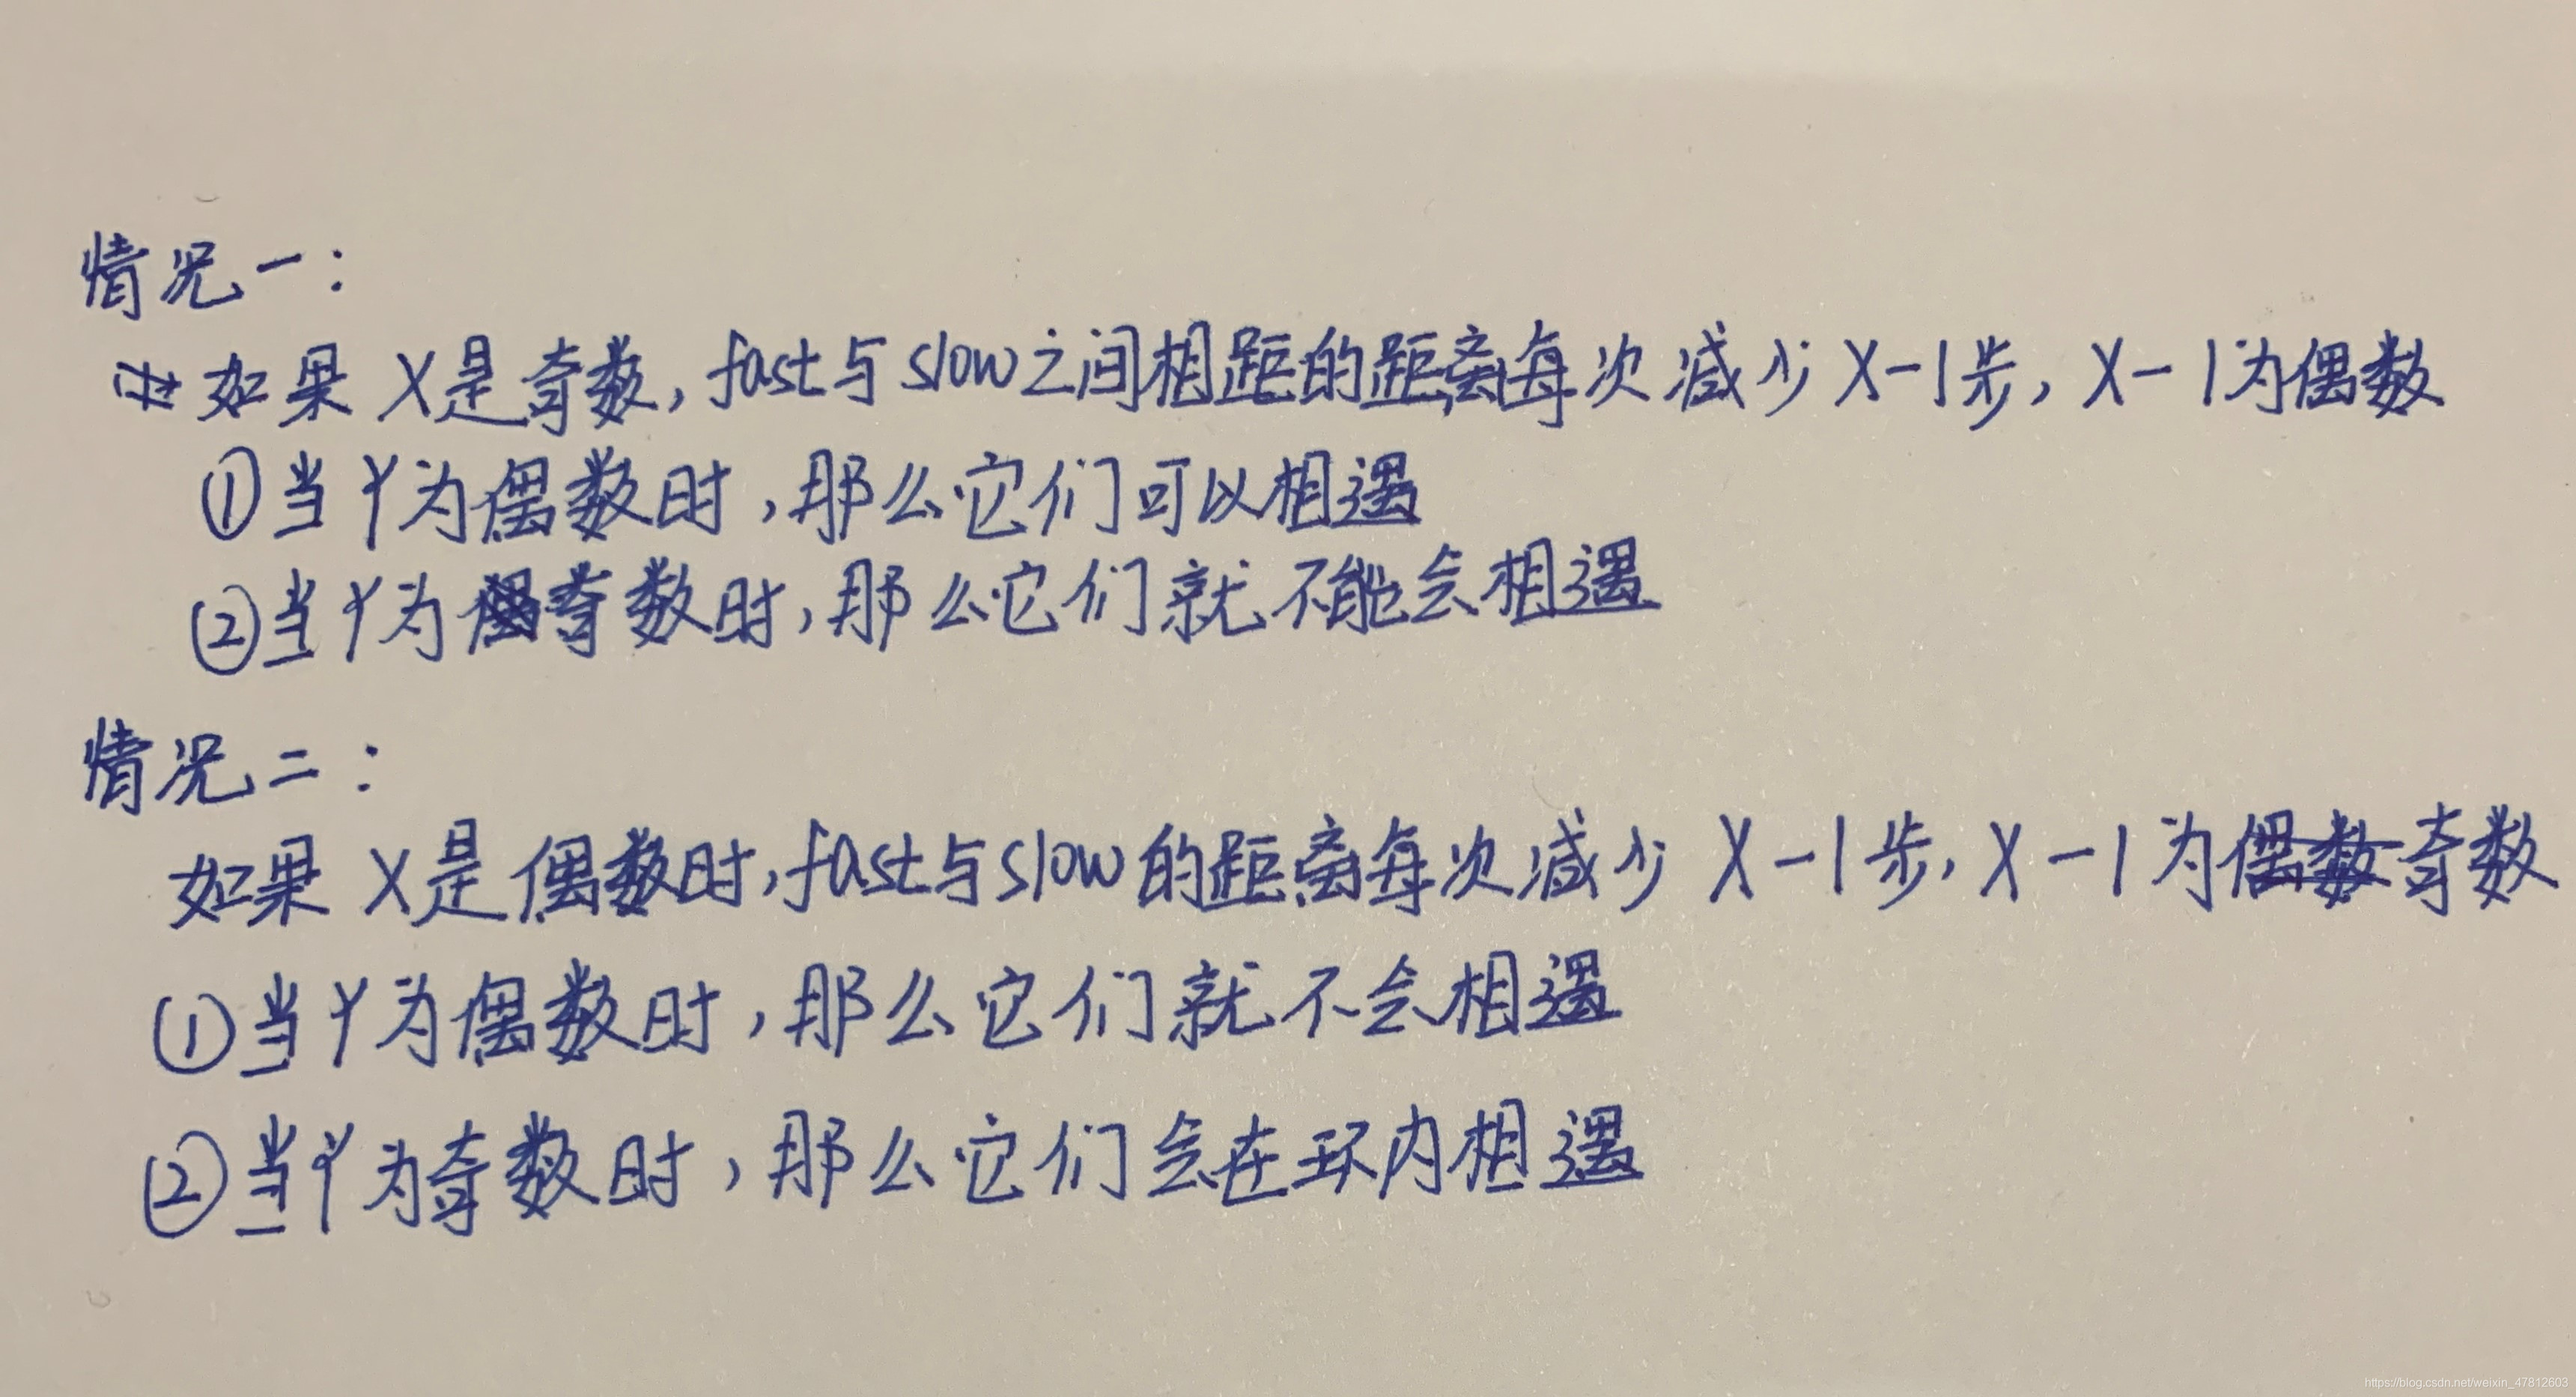 情况一：
如果 X是奇数，fast与slow之间相距的距离每次减少X-1步，X-1为偶数
①当Y为偶数时，那么它们可以相遇
②当Y为奇数时，那么它们就不能会相遇
情况二：
如果 X是偶数时，fast与slow的距离每次减少 X-1步，X-1为偶数奇数
①当Y为偶数时，那么它们就不会相遇
②当Y为奇数时，那么它们会在环内相遇
https://blog.csdn.net/weixin_47812603